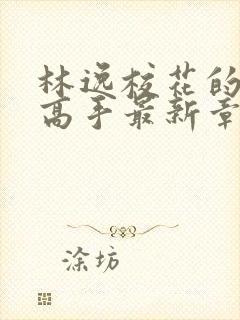 林逸校花的
高手最新章
涂坊